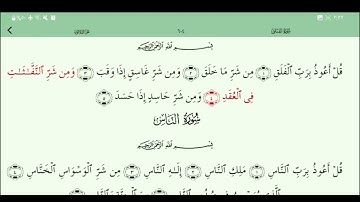 ٢:٢٢
سورة الفلق
٦٠٤
بِسْمِ ٱللَّهِ ٱلرَّحْمَٰنِ ٱلرَّحِيمِ
قُلْ أَعُوذُ بِرَبِّ ٱلْفَلَقِ ١ مِن شَرِّ مَا خَلَقَ ٢ وَمِن شَرِّ غَاسِقٍ إِذَا وَقَبَ ٣ وَمِن شَرِّ ٱلنَّفَّٰثَٰتِ
فِى ٱلْعُقَدِ ٤ وَمِن شَرِّ حَاسِدٍ إِذَا حَسَدَ ٥
سُورَةُ النَّاسِ
بِسْمِ ٱللَّهِ ٱلرَّحْمَٰنِ ٱلرَّحِيمِ
قُلْ أَعُوذُ بِرَبِّ ٱلنَّاسِ ١ مَلِكِ ٱلنَّاسِ ٢ إِلَٰهِ ٱلنَّاسِ ٣ مِن شَرِّ ٱلْوَسْوَاسِ ٱلْخَنَّاسِ ٤